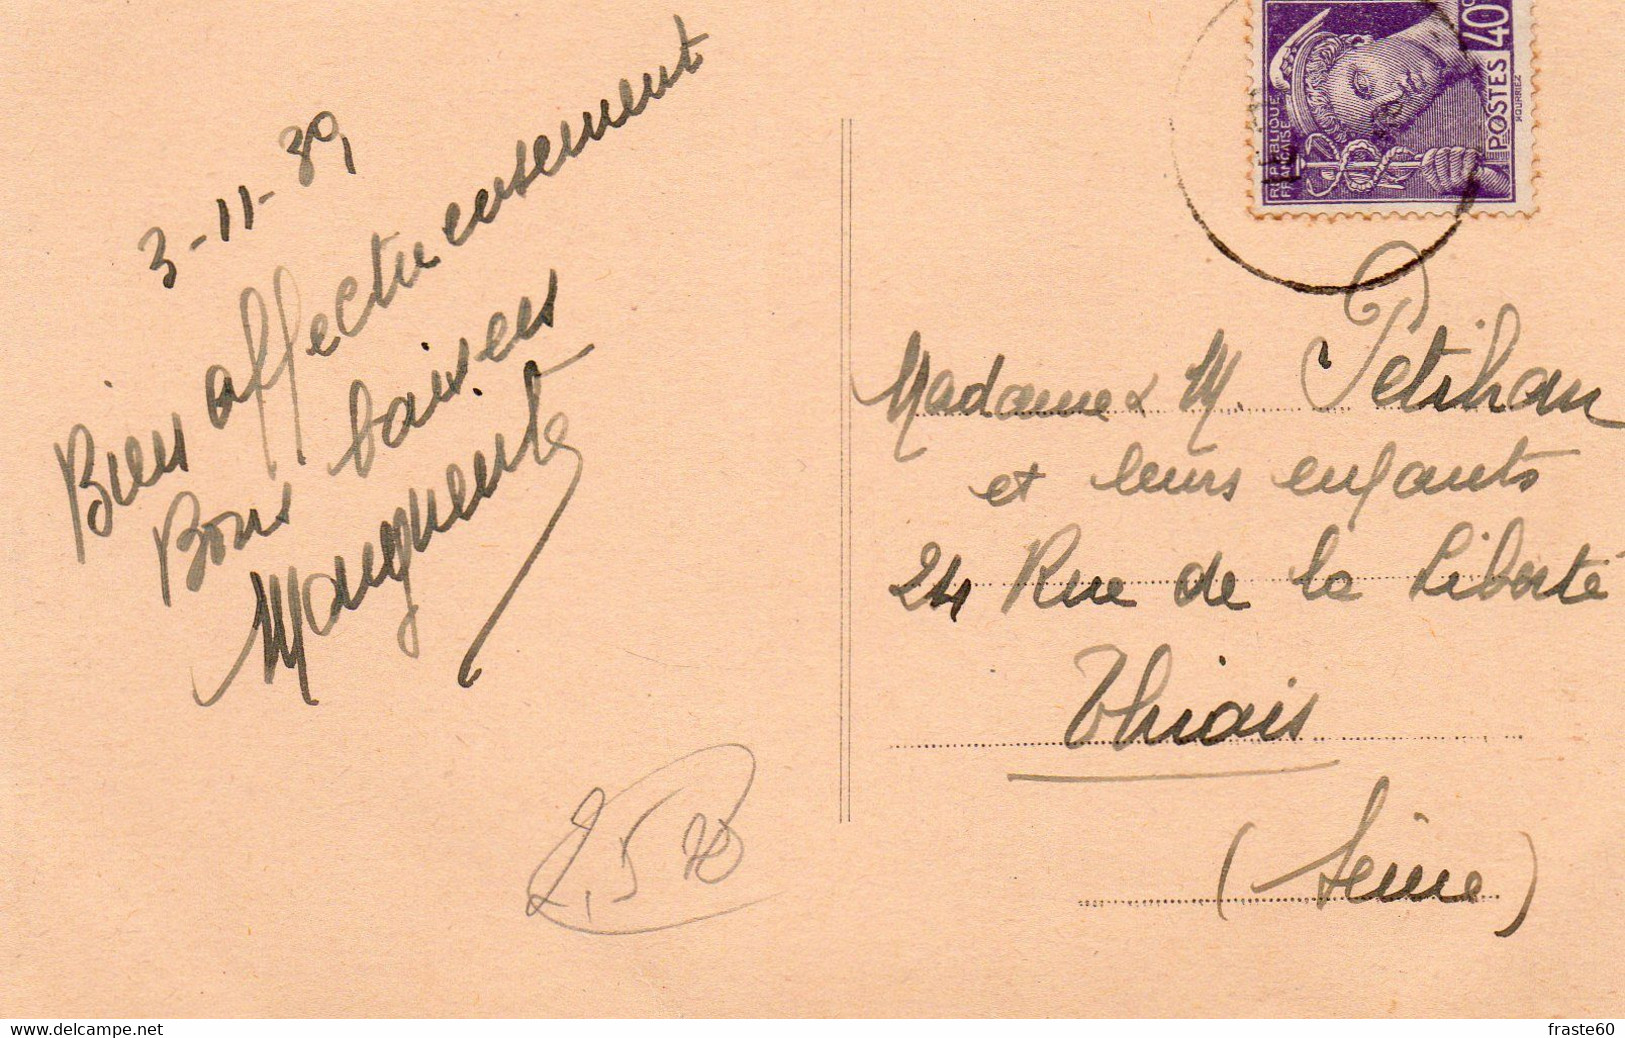 3-11-39
Bien affectueusement
Bons baisers
Marguerite
2,5
REPUBLIQUE
FRANCAISE
POSTES 40c
Madame & M. Petihan
et leurs enfants
24 Rue de la Liberté
Thiais
(Seine)
www.delcampe.net
fraste60